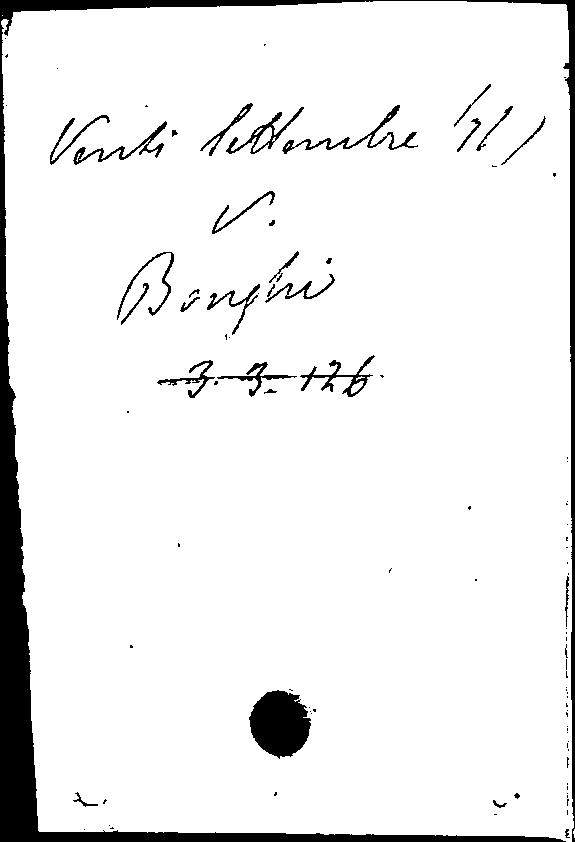 Venti Settembre (Il)
V.
Bonghi
3. 3. 126